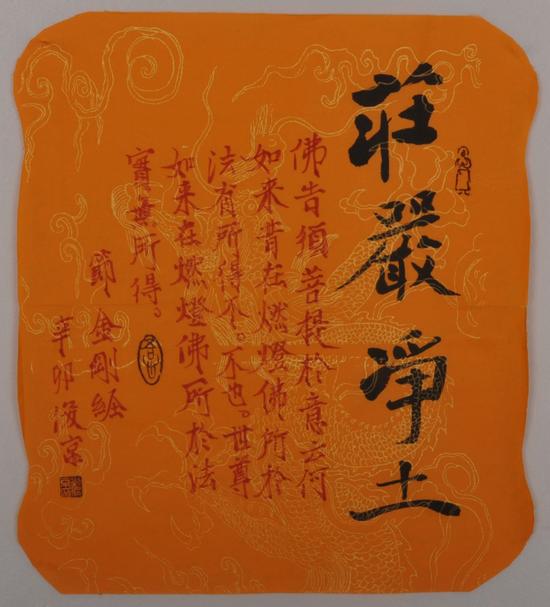 莊嚴淨土
佛告須菩提於意云何
如来昔在燃燈佛所於
法有所得不。不也。世尊
如来在燃燈佛所於法
實無所得。
節金剛經
辛卯俊京